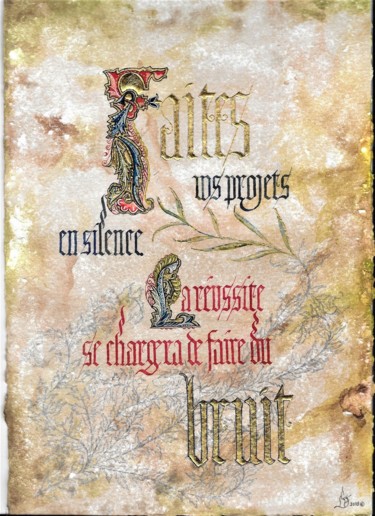 Faites
vos projets
en silence
La réussite
se chargera de faire du
bruit